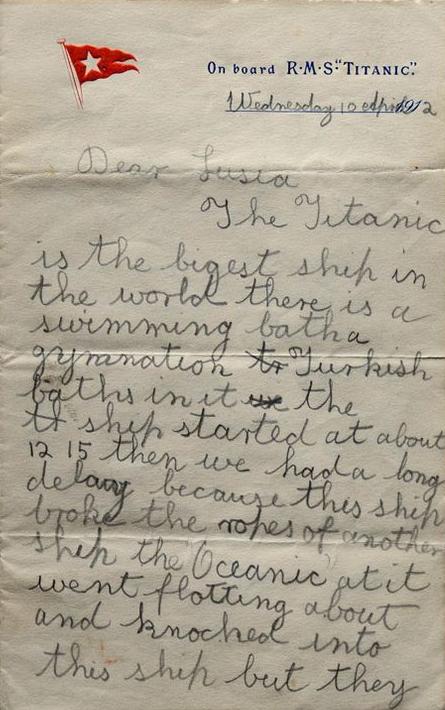 On board R·M·S·"TITANIC."
Wednesday 10 April 1912
Dear Lusia
The Titanic
is the bigest ship in
the world there is a
swimming bath a
gymnation tr Turkish
baths in it the
tt ship started at about
12 15 then we had a long
delay because this ship
broke the ropes of another
ship the Oceanic at it
went flotting about
and knocked into
this ship but they